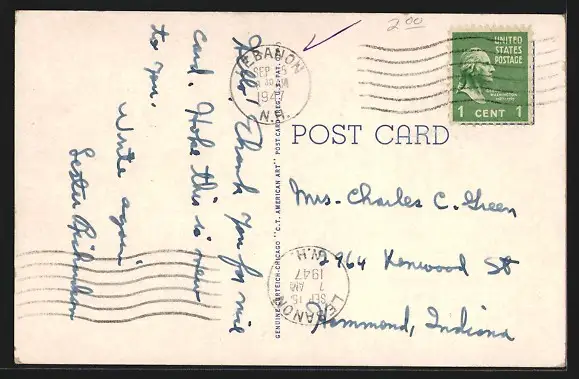 Hello! Thank you for nice
card. Hope this is new
to you.
Write again.
Lester Richardson
GENUINE CURTEICH-CHICAGO "C.T. AMERICAN ART" POST CARD (REG. U.S. PAT. OFF.)
2 00
LEBANON
SEP 15
AM
194
N.H.
UNITED
STATES
POSTAGE
WASHINGTON
1 CENT 1
POST CARD
Mrs. Charles C. Green
2964 Kenwood St
Hammond, Indiana
LEBANON
SEP 15
7 AM
1947
N.H.